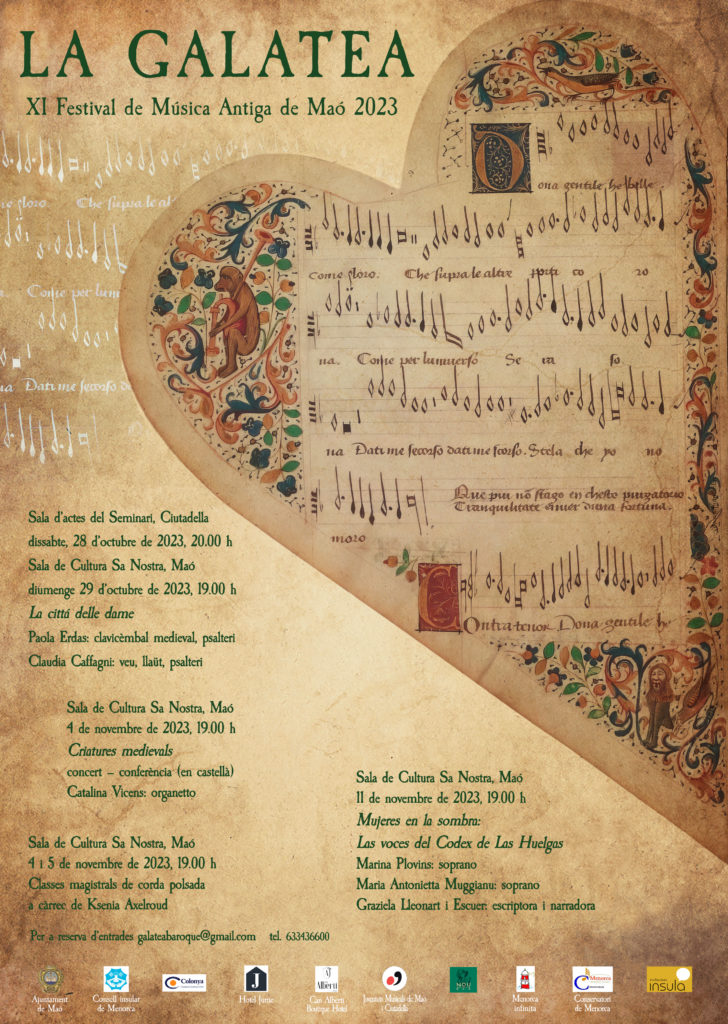 LA GALATEA
XI Festival de Música Antiga de Maó 2023
ona gentile he belle
come floro. Che supra le altre porti co ro
na. Come per lumuerso Se ua so
na Dati me secorso dati me scorso. Stela che yo no
Que piu nõ stago en chesto purgatorio
Tranquilitate
moro
Contratenor Dona gentile h
come floro. Che supra le al
Come per lum
na Dati me secorso da
Sala d'actes del Seminari, Ciutadella
dissabte, 28 d'octubre de 2023, 20.00 h
Sala de Cultura Sa Nostra, Maó
diumenge 29 d'octubre de 2023, 19.00 h
La cittá delle dame
Paola Erdas: clavicèmbal medieval, psalteri
Claudia Caffagni: veu, llaüt, psalteri
Sala de Cultura Sa Nostra, Maó
4 de novembre de 2023, 19.00 h
Criatures medievals
concert – conferència (en castellà)
Catalina Vicens: organetto
Sala de Cultura Sa Nostra, Maó
4 i 5 de novembre de 2023, 19.00 h
Classes magistrals de corda polsada
a càrrec de Ksenia Axelroud
Sala de Cultura Sa Nostra, Maó
11 de novembre de 2023, 19.00 h
Mujeres en la sombra:
Las voces del Codex de Las Huelgas
Marina Plovins: soprano
Maria Antonietta Muggianu: soprano
Graziela Lleonart i Escuer: escriptora i narradora
Per a reserva d'entrades galateabaroque@gmail.com tel. 633436600
Ajuntament
de Maó
Consell insular
de Menorca
Colonya
Hotel Jume
Albèru
Can Albèru
Boutique Hotel
Joventuts Musicals de Maó
i Ciutadella
NOU
Menorca
infinita
Menorca
Conservatori
de Menorca
insula